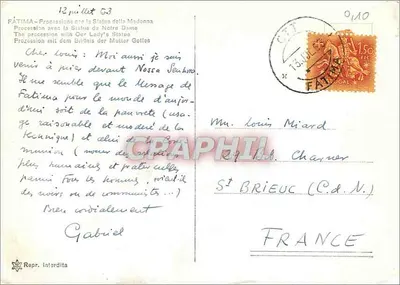 12 juillet 63
0,10
FÁTIMA - Processione con la Statua della Madonna
Procession avec la Statue de Notre Dame
The procession with Our Lady's Statue
Prozession mit dem Bildnis der Mutter Gottes
Cher Louis : Moi aussi je suis
venu à pied devant Nossa Senhora.
Il me semble que le message de
Fatima pour le monde d'aujour-
d'hui soit de la pauvreté (usa-
ge raisonnable et modéré de la
technique) et
munion (
plus humaines et fraternelles
parmi tous les hommes,
des noirs ou de communistes...)
Bien cordialement
Gabriel
C.T.T.
FATIMA
1$50
Mr. Louis Miard
29 Bd. Charner
St BRIEUC (C.d.N.)
FRANCE
CPAPHIL
Repr. Interdite